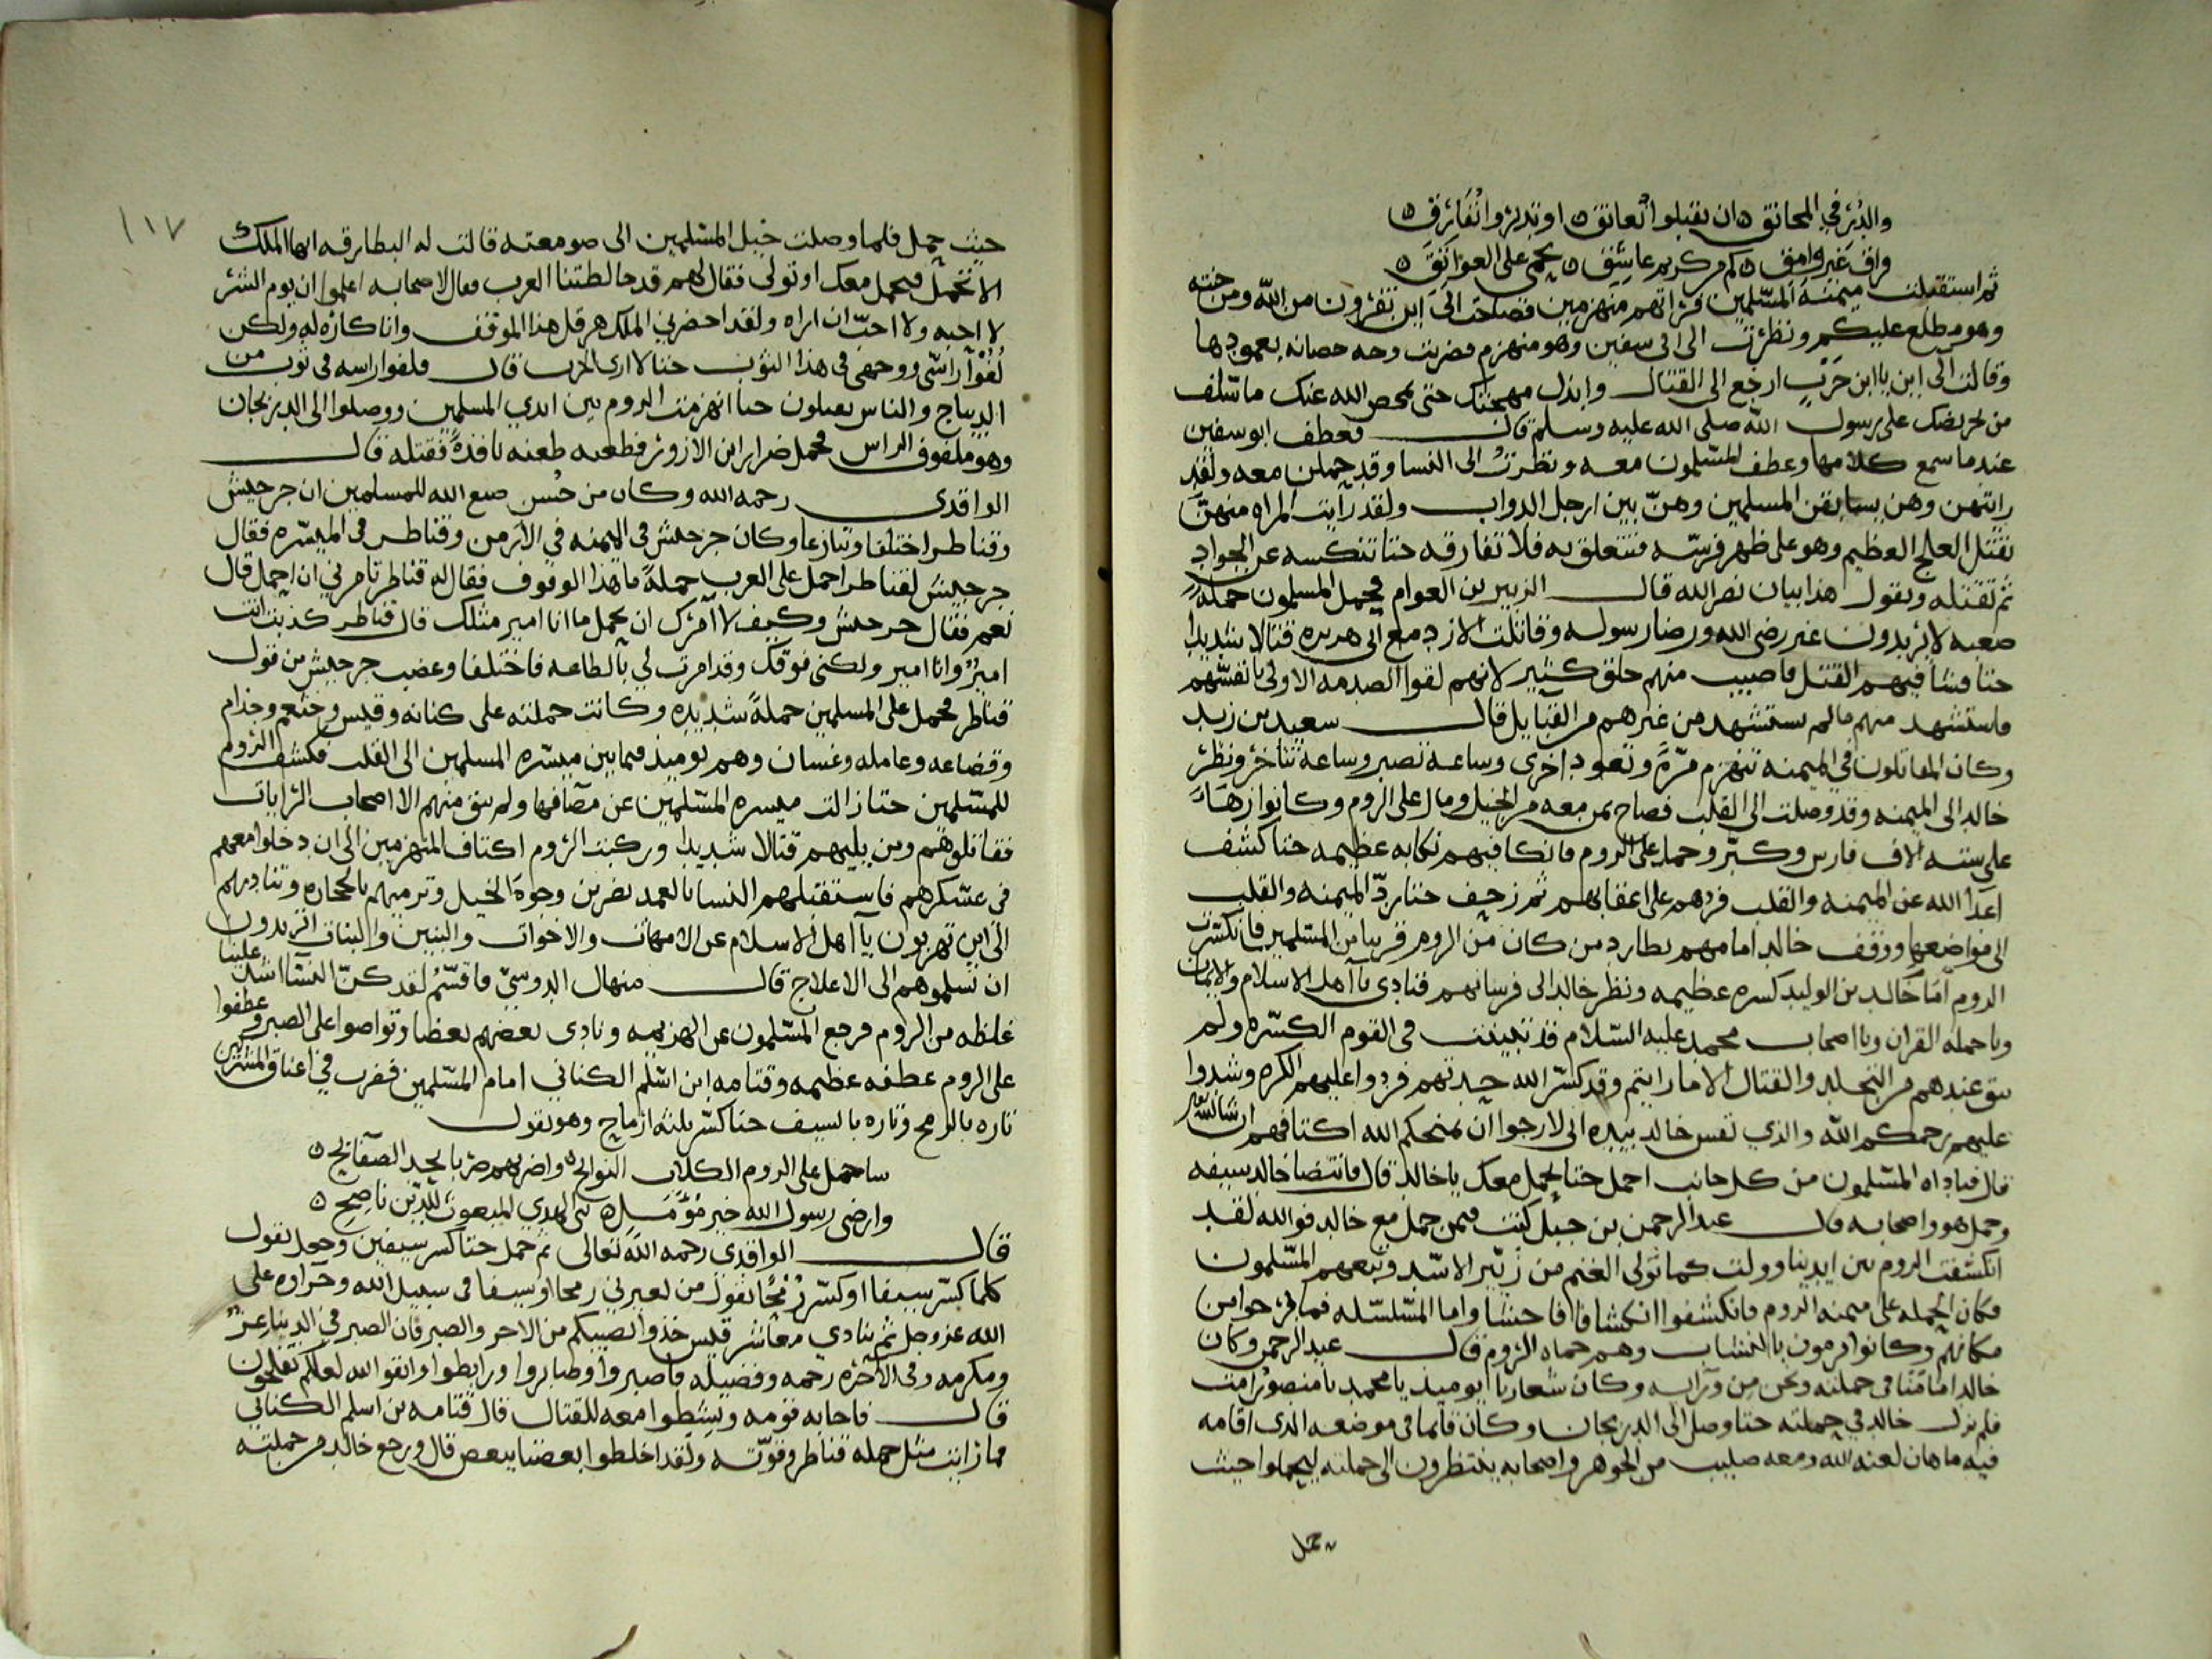 والدر في المخانق ان تقبلوا نعانق او تدبروا نفارق
فراق غير وامق كم من كريم عاشق يحمي على العواتق
ثم استقبلت ميمنة المسلمين فراتهم منهزمين فصاحت الى اين تنفرون من الله ومن جنته
وهو مطلع عليكم ونظرت الى ابى سفين وهو منهزم فضربت وجه حصانه بعمودها
وقالت الى اين يا ابن حرب ارجع الى القتال وابذل مهجتك حتى يمحص الله عنك ما سلف
من تحريضك على رسول الله صلى الله عليه وسلم قال فعطف ابو سفين
عندما سمع كلامها وعطف المسلمون معه ونظرت الى النسا وقد حملن معه ولقد
رايتهن وهن يسابقن المسلمين وهن بين ارجل الدواب ولقد رايت المراه منهن
تقتل العلج العظيم وهو على ظهر فرسه فتتعلق به فلا تفارقه حتا تنكسه عن الجواد
ثم تقتله وتقول هذا بيان نصر الله قال الزبير بن العوام فحمل المسلمون حملة
صعبه لا يريدون غير رضى الله ورضا رسوله وقاتلت الازد مع ابى هريره قتالا شديدا
حتا فشا فيهم القتل فاصيب منهم خلق كثير لانهم لقوا الصدمه الاولى بانفسهم
فاستشهد منهم مالم يستشهد من غيرهم من القبايل قال سعيد بن زيد
وكان المقاتلون في الميمنه تنهزم مرة وتعود اخرى وساعة تصبر وساعة تتاخر ونظر
خالد الى الميمنه وقد وصلت الى القلب فصاح بمن معه من الخيل ومال على الروم وكانوا زهاء
على سته الاف فارس وكبر وحمل على الروم فانكا فيهم نكايه عظيمه حتا كشف
اعدا الله عن الميمنه والقلب فردهم على اعقابهم ثم زحف حتا رد الميمنه والقلب
الى مواضعها ووقف خالد امامهم يطارد من كان من الروم قريبا من المسلمين فانكسرت
الروم امام خالد بن الوليد كسره عظيمه ونظر خالد الى فرسانهم فنادى يا اهل الاسلام والايمان
ويا حمله القران ويا اصحاب محمد عليه السلام قد تبينت في القوم الكسره ولم
يبق عندهم من التجلد والقتال الا ما رايتم وقد كسر الله حدتهم فردوا عليهم الكره وشدوا
عليهم رحمكم الله والذي نفس خالد بيده اني لارجوا ان يمنحكم الله اكتافهم ان شا الله
قال فناداه المسلمون من كل جانب احمل حتا نحمل معك يا خالد قال فانتضا خالد سيفه
وحمل هو واصحابه قال عبد الرحمن بن جبل كنت فيمن حمل مع خالد فوالله لقد
انكشفت الروم بين ايدينا وولت كما تولى الغنم من زئير الاسد وتبعهم المسلمون
فكان الحمله على ميمنه الروم فانكشفوا انكشافا فاحشا واما المسلسله فما برحوا من
مكانهم وكانوا يرمون بالنشاب وهم حماه الروم قال عبد الرحمن وكان
خالد امامنا في حملته ونحن من ورايه وكان شعارنا يوميذ يا محمد يا منصور امت
فلم يزل خالد في حملته حتا وصل الى الديرجان وكان قايما في موضعه الذي اقامه
فيه ماهان لعنه الله ومعه صليب من الجوهر واصحابه ينتظرون الى حملته ليحملوا حيث
يحمل
١١٧
حيث يحمل فلما وصلت خيل المسلمين الى صومعته قالت له البطارقه ايها الملك
الا تحمل فنحمل معك او تولى فقال لهم قد خالطتنا العرب فقال لاصحابه اعلموا ان يوم الشر
لا احبه ولا احب ان اراه ولقد احضرني الملك هرقل هذا الموقف وانا كاره له ولكن
لفوا راسي ووجهي في هذا الثوب حتا لا ارى الحرب قال فلفوا راسه في ثوب من
الديباج والناس يقتلون حتا انهزمت الروم بين ايدي المسلمين ووصلوا الى الديرجان
وهو ملفوف الراس فحمل ضرار ابن الازور فطعنه طعنه نافذة فقتله قال
الواقدى رحمه الله وكان من حسن صنع الله للمسلمين ان جرجيش
وقناطر اختلفا وتنازعا وكان جرجيش في الميمنه في الارمن وقناطر في الميسره فقال
جرجيش لقناطر احمل على العرب حملة ما هذا الوقوف فقال له قناطر تامرني ان احمل قال
نعم فقال جرجيش وكيف لا آمرك ان تحمل ما انا امير مثلك قال قناطر كذبت انت
امير وانا امير ولكني فوقك وقد امرت لي بالطاعه فاختلفا وغضب جرجيش من قول
قناطر فحمل على المسلمين حملة شديده وكانت حملته على كنانه وقيس وخثعم وجذام
وقضاعه وعامله وغسان وهم يوميذ فيما بين ميسره المسلمين الى القلب فكشف الروم
للمسلمين حتا زالت ميسره المسلمين عن مصافها ولم يبق منهم الا اصحاب الرايات
فقاتلوهم ومن يليهم قتالا شديدا وركبت الروم اكتاف المنهزمين الى ان دخلوا معهم
في عسكرهم فاستقبلهم النسا بالعمد يضربن وجوه الخيل وترميهم بالحجاره وتناديهم
الى اين تهربون يا اهل الاسلام عن الامهات والاخوات والبنين والبنات اتريدون
ان تسلموهم الى الاعلاج قال منهال الدوسي فاقسم لقد كن النسا اشد علينا
غلظه من الروم فرجع المسلمون عن الهزيمه ونادى بعضهم بعضا وتواصوا على الصبر وعطفوا
على الروم عطفه عظيمه وقتامه ابن اسلم الكناني امام المسلمين فضرب في اعناق المشركين
تاره بالرمح وتاره بالسيف حتا كسر ثلثه ارماح وهو يقول
ساحمل على الروم الكلاب النوابح واضربهم ضربا بحد الصفايح
وارضى رسول الله خير مؤمل نبي الهدى المبعوث للدين ناصح
قال الواقدي رحمه الله تعالى ثم حمل حتا كسر سيفين وجعل يقول
كلما كسر سيفا او كسر رمحا يقول من يعيرني رمحا او سيفا في سبيل الله واجره على
الله عز وجل ثم ينادي معاشر قيس خذوا نصيبكم من الاجر والصبر فان الصبر في الدنيا عز
ومكرمه وفي الآخره رحمه وفضيله فاصبروا وصابروا ورابطوا واتقوا الله لعلكم تفلحون
قال فاجابه قومه ونشطوا معه للقتال قال قتامه بن اسلم الكناني
فما رايت مثل حمله قناطر وقوته ولقد اخلطوا بعضنا ببعض قال ورجع خالد من حملته